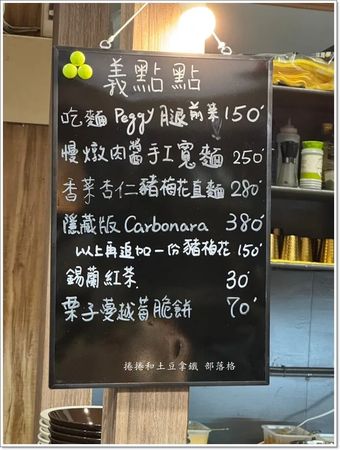 義點點
吃麵 Peggy 腿前菜 150
慢燉肉醬手工寬麵 250
香菜杏仁豬梅花直麵 280
隱藏版 Carbonara 380
以上再追加一份豬梅花 150
錫蘭紅茶 30
栗子蔓越莓脆餅 70
捲捲和土豆拿鐵 部落格